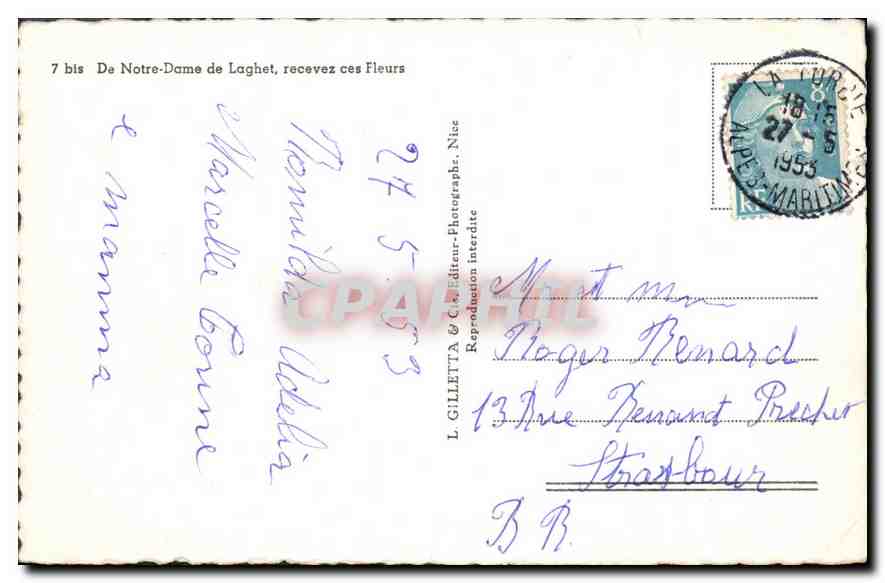 7 bis De Notre-Dame de Laghet, recevez ces Fleurs
27 5. 53
Romilda Adelia
Marcelle Tonne
e mamma
L. GILLETTA & Cie, Editeur-Photographe, Nice
Reproduction interdite
LA TURBIE
18-15
27-5
1953
ALPES-MARITIMES
8
RF
CPAPHIL
M et
Roger Renard
13 Rue Renant Precher
Strasbour
B R.